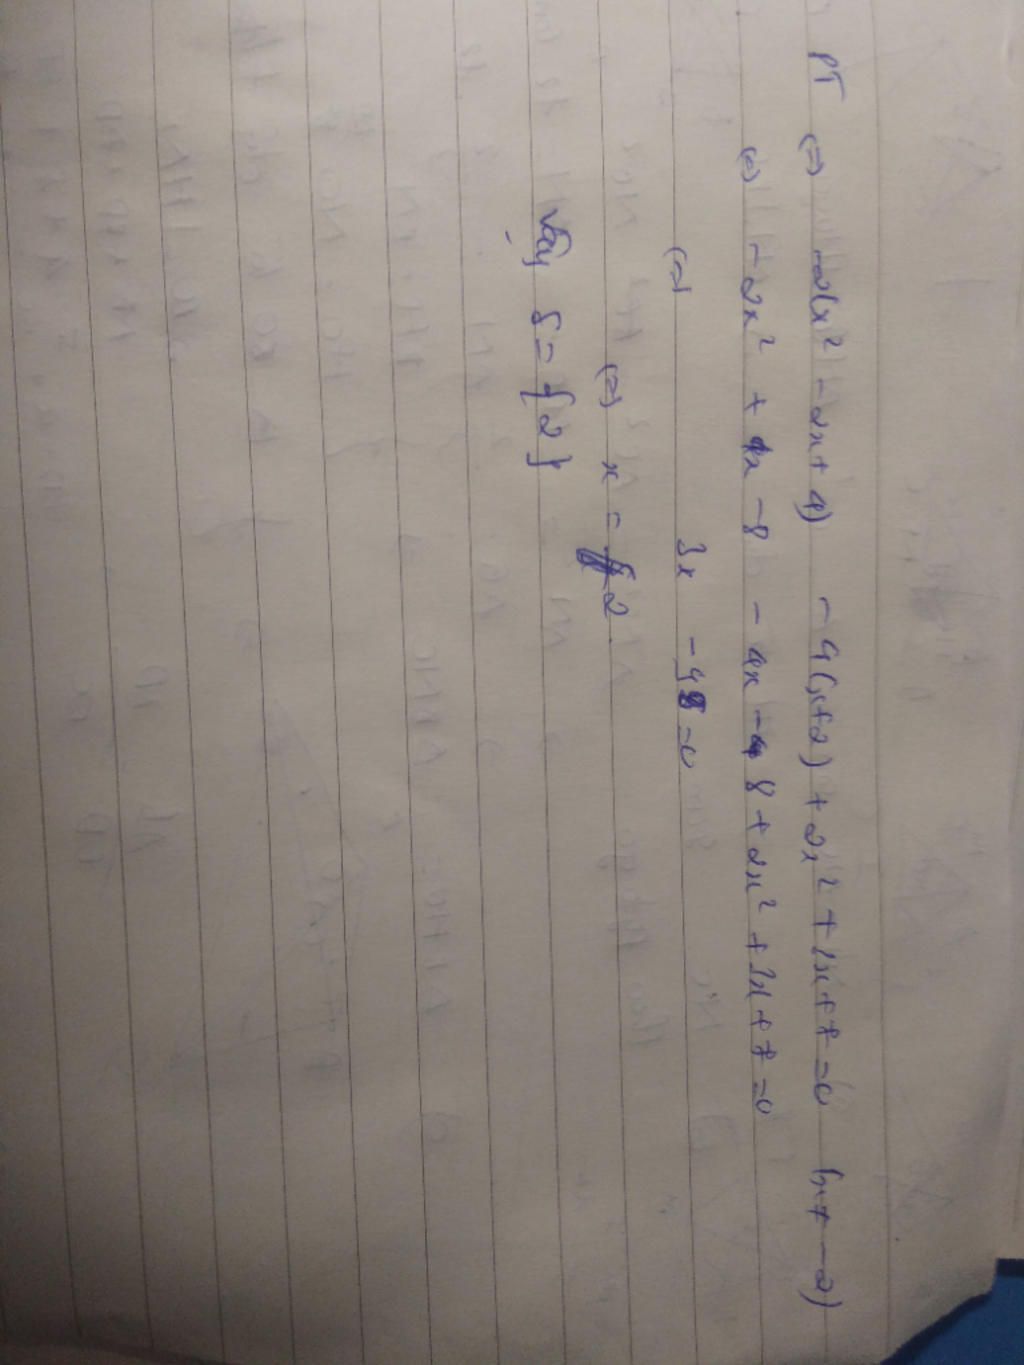 PT (=) -2(x² - 2x + 4) - 4(x+2) + 2x² + 3x + 7 = 0 (x ≠ -2)
(=) - 2x² + 4x - 8 - 4x - 8 + 2x² + 3x + 7 = 0
(=) 3x - 9 = 0
(=) x = 2.
Vậy S = {2}